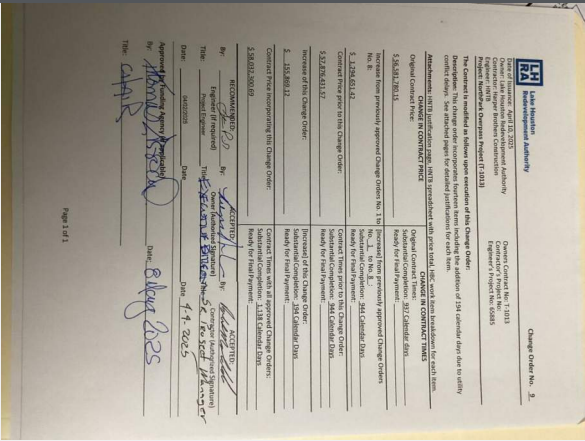 LH
RA
Lake Houston
Redevelopment Authority
Change Order No. 9
Date of Issuance: April 10, 2025
Owner: Lake Houston Redevelopment Authority
Contractor: Harper Brothers Construction
Engineer: HNTB
Project: NorthPark Overpass Project (T-1013)
Owners Contract No: T-1013
Contractor's Project No:
Engineer's Project No: 65685
The Contract is modified as follows upon execution of this Change Order:
Description: This change order incorporates fourteen items including the addition of 194 calendar days due to utility
conflict delays. See attached pages for detailed justifications for each item.
Attachments: HNTB justification page, HNTB spreadsheet with price total, HBC work item breakdown for each item.
CHANGE IN CONTRACT PRICE
CHANGE IN CONTRACT TIMES
Original Contract Price:
$ 56,581,780.15
Original Contract Times:
Substantial Completion: 597 Calendar days
Ready for Final Payment:
Increase from previously approved Change Orders No. 1 to
No. 8:
$ 1,294,651.42
[Increase] from previously approved Change Orders
No. 1 to No. 8 :
Substantial Completion:
Calendar Days
Ready for Final Payment:
Contract Price prior to this Change Order:
$ 57,876,431.57
Contract Times prior to this Change Order:
Substantial Completion: 944 Calendar Days
Ready for Final Payment:
Increase of this Change Order:
$ 155,869.12
[Increase] of this Change Order:
Substantial Completion: 194 Calendar Days
Ready for Final Payment:
Contract Price incorporating this Change Order:
$ 58,032,300.69
Contract Times with all approved Change Orders:
Substantial Completion: 1,138 Calendar Days
Ready for Final Payment:
RECOMMENDED:
ACCEPTED:
ACCEPTED:
By:
By:
By:
Engineer (if required)
Owner (Authorized Signature)
Contractor (Authorized Signature)
Title: Project Engineer
Title:
Sr Project Manager
Date: 04/02/2025
Date
Date 4-9-2025
Approved by Funding Agency (if applicable)
By:
Date: 8 May 2025
Title: CHAIR
Page 1 of 1